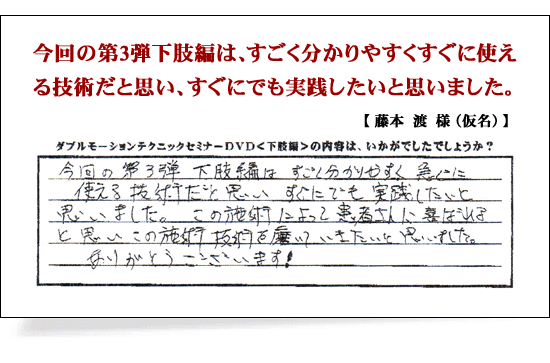 今回の第3弾下肢編は、すごく分かりやすくすぐに使え
る技術だと思い、すぐにでも実践したいと思いました。
【 藤本 渡 様（仮名）】
ダブルモーションテクニックセミナーDVD＜下肢編＞の内容は、いかがでしたでしょうか？
今回の第3弾 下肢編は すごく分かりやすく 急ぐに
使える技術だと思い すぐにでも 実践したいと
思いました。この施術によって患者さんに喜ばれる
と思い この施術 技術を磨いていきたいと思いました。
ありがとうございます!